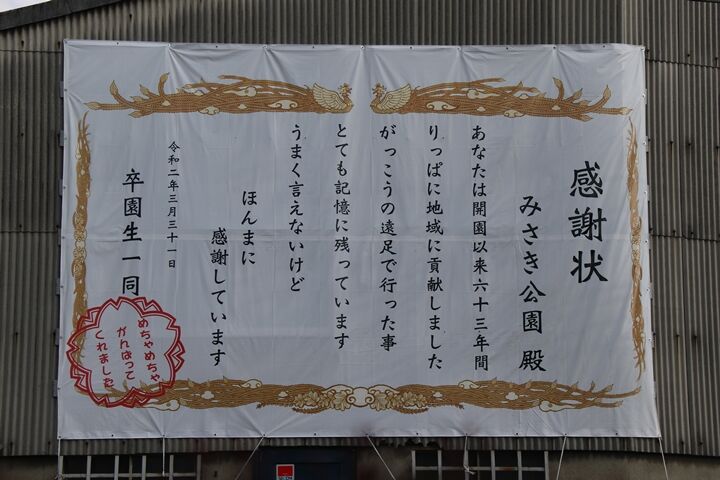 感謝状
みさき公園 殿
あなたは開園以来六十三年間
りっぱに地域に貢献しました
がっこうの遠足で行った事
とても記憶に残っています
うまく言えないけど
ほんまに
感謝しています
令和二年三月三十一日
卒園生一同
めちゃめちゃ
がんばって
くれました